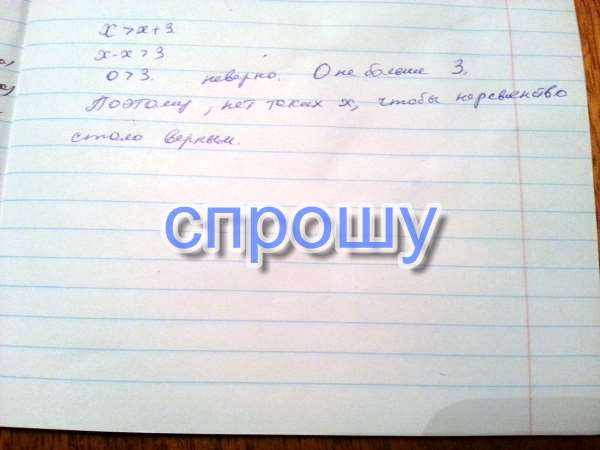 x > x + 3
x - x > 3
0 > 3. неверно. 0 не больше 3.
Поэтому, нет таких x, чтобы неравенство
стало верным.
спрошу